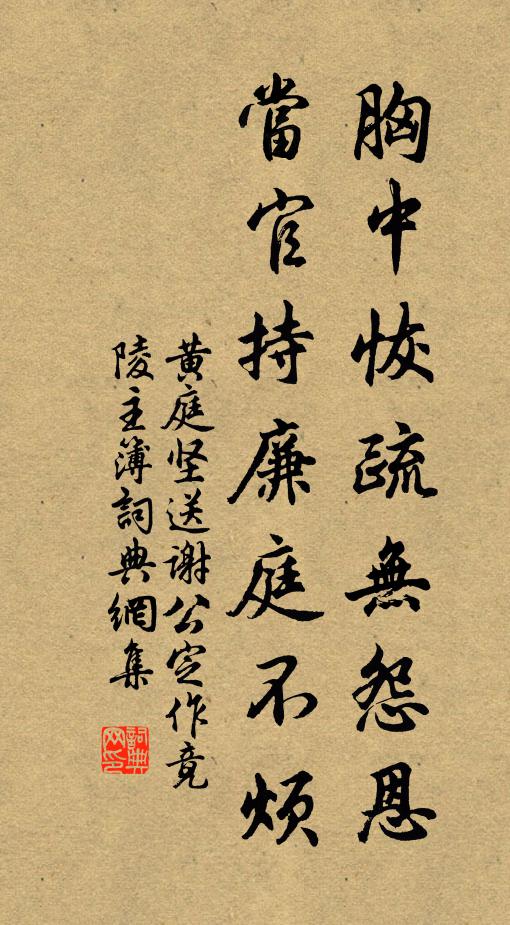 胸中恢疏無怨恩
當官持廉庭不煩
黄庭坚送謝公定作竟
陵主簿詞典網集
詞典网印